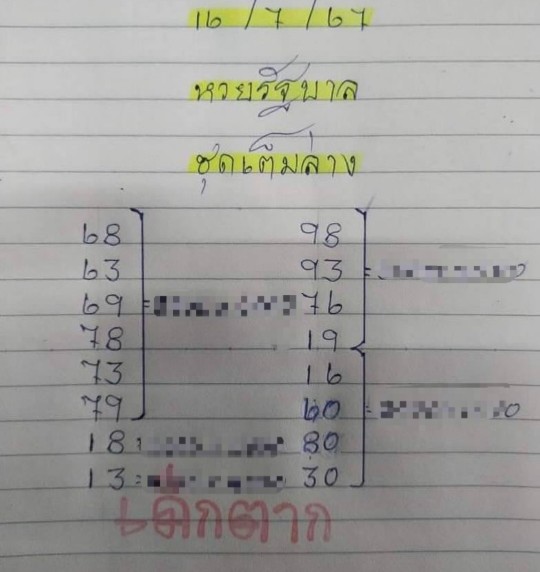 16 / 7 / 67
หวยรัฐบาล
ชุดเต็มล่าง
68 98
63 93 =
69 = 76
78 19
73 16
79 60 =
18 = 80
13 = 30
เด็กตาก